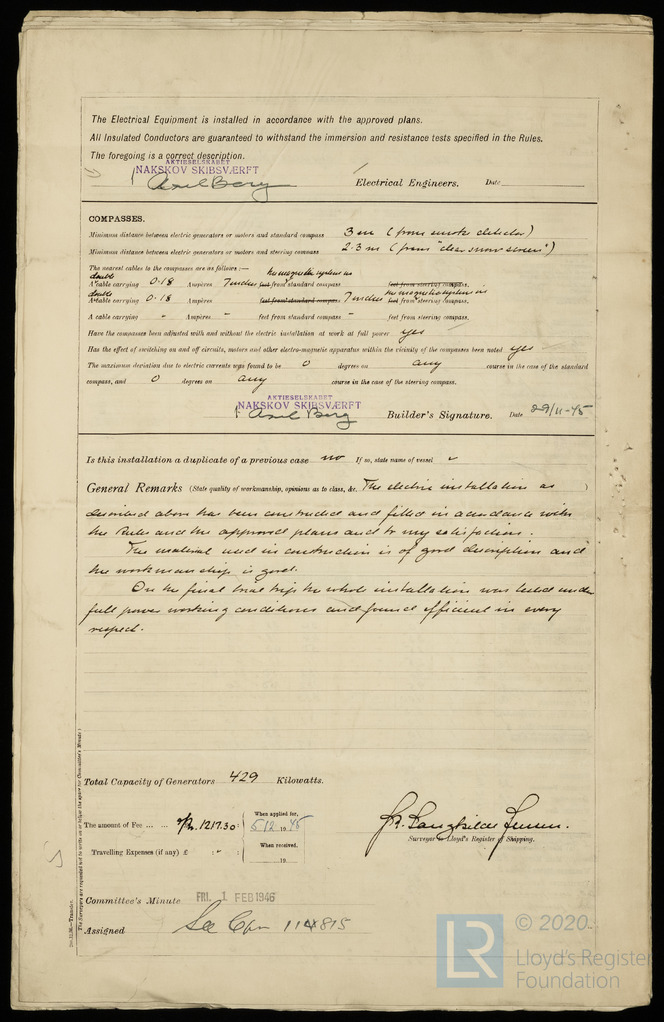 The Electrical Equipment is installed in accordance with the approved plans.
All Insulated Conductors are guaranteed to withstand the immersion and resistance tests specified in the Rules.
The foregoing is a correct description.
AKTIESELSKABET
NAKSKOV SKIBSVÆRFT
Axel Berg Electrical Engineers. Date
COMPASSES.
Minimum distance between electric generators or motors and standard compass 3 m (from smoke detector)
Minimum distance between electric generators or motors and steering compass 2.3 m (from "clear view screen")
The nearest cables to the compasses are as follows:— the magnetic system is
double
A cable carrying 0.18 Ampères 7 feet from standard compass, feet from steering compass.
double the magnetic system is
A cable carrying 0.18 Ampères feet from standard compass, 7 feet from steering compass.
A cable carrying " Ampères " feet from standard compass " feet from steering compass.
Have the compasses been adjusted with and without the electric installation at work at full power yes
Has the effect of switching on and off circuits, motors and other electro-magnetic apparatus within the vicinity of the compasses been noted yes
The maximum deviation due to electric currents was found to be 0 degrees on any course in the case of the standard
compass, and 0 degrees on any course in the case of the steering compass.
AKTIESELSKABET
NAKSKOV SKIBSVÆRFT
Axel Berg Builder's Signature. Date 29/11-45
Is this installation a duplicate of a previous case no If so, state name of vessel
General Remarks (State quality of workmanship, opinions as to class, &c. The electric installation as )
described above has been constructed and fitted in accordance with
the Rules and the approved plans and to my satisfaction.
The material used in construction is of good description and
the workmanship is good.
On the final trial trip the whole installation was tested under
full power working conditions and found efficient in every
respect.
Total Capacity of Generators 429 Kilowatts.
The amount of Fee ... ... 1217.30 :
When applied for,
5/12 19 45
Travelling Expenses (if any) £ : " :
When received,
19
Surveyor to Lloyd's Register of Shipping.
Committee's Minute FRI. 1 FEB 1946
Assigned See Cpn 114815
2m.11.36.—Transfer.
(The Surveyors are requested not to write on or below the space for Committee's Minute.)
LR
© 2020
Lloyd's Register
Foundation